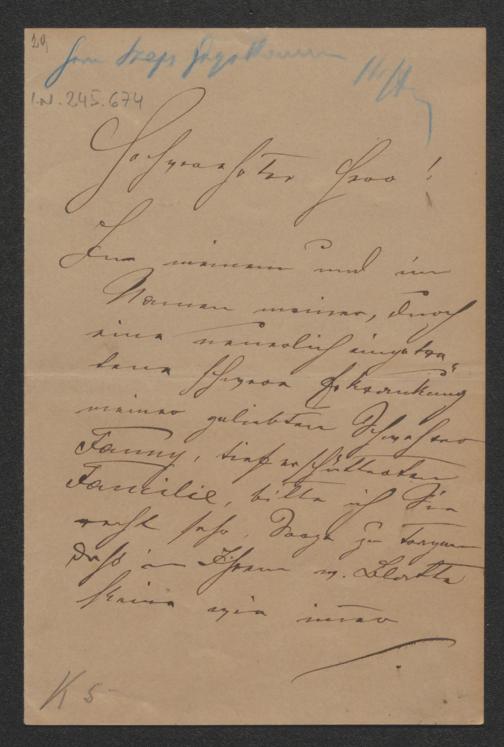 29
I.N. 245.674
Hochverehrter Herr!
In meinem und im
Namen meiner, durch
eine neuerlich eingetre„
tene schwere Erkrankung
meiner geliebten Schwester
Fanny, tief erschütterten
Familie, bitte ich Sie
recht sehr, Sorge zu tragen
daß in Ihrem w. Blatte
keine wie immer
K 5